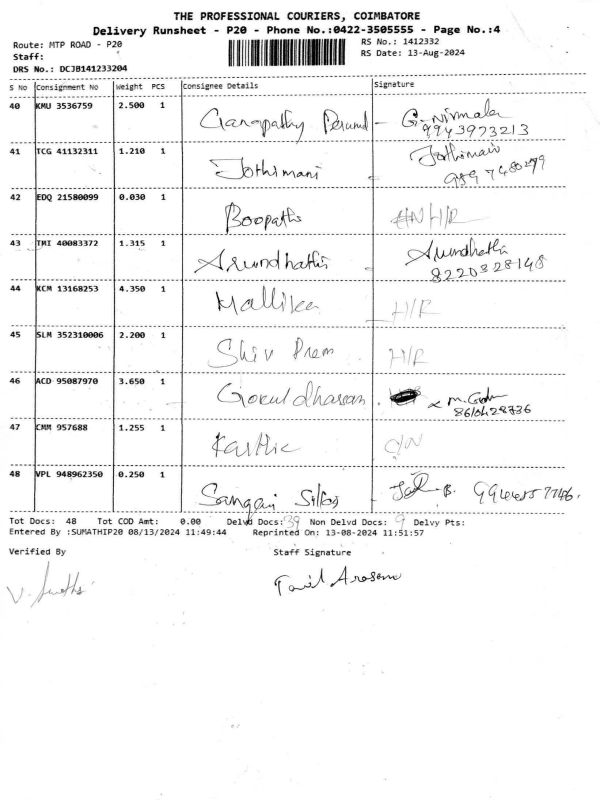 THE PROFESSIONAL COURIERS, COIMBATORE
Delivery Runsheet - P20 - Phone No.:0422-3505555 - Page No.:4
Route: MTP ROAD - P20 RS No.: 1412332
Staff: RS Date: 13-Aug-2024
DRS No.: DCJB141233204
S No Consignment No Weight PCS Consignee Details Signature
40 KMU 3536759 2.500 1 Ganapathy Perumal - G. Nirmala
9943973213
41 TCG 41132311 1.210 1 Jothimani - Jothimani
42 EDQ 21580099 0.030 1 Boopathi H/R
43 TMI 40083372 1.315 1 Arundhathi - Arundhathi
8220328148
44 KCM 13168253 4.350 1 Mallika H/R
45 SLM 352310006 2.200 1 Shiv Prem H/R
46 ACD 95087970 3.650 1 Gokuldharsan
47 CMM 957688 1.255 1 Karthic
48 VPL 948962350 0.250 1
Tot Docs: 48 Tot COD Amt: 0.00 Delvd Docs: 39 Non Delvd Docs: 9 Delvy Pts:
Entered By :SUMATHIP20 08/13/2024 11:49:44 Reprinted On: 13-08-2024 11:51:57
Verified By Staff Signature